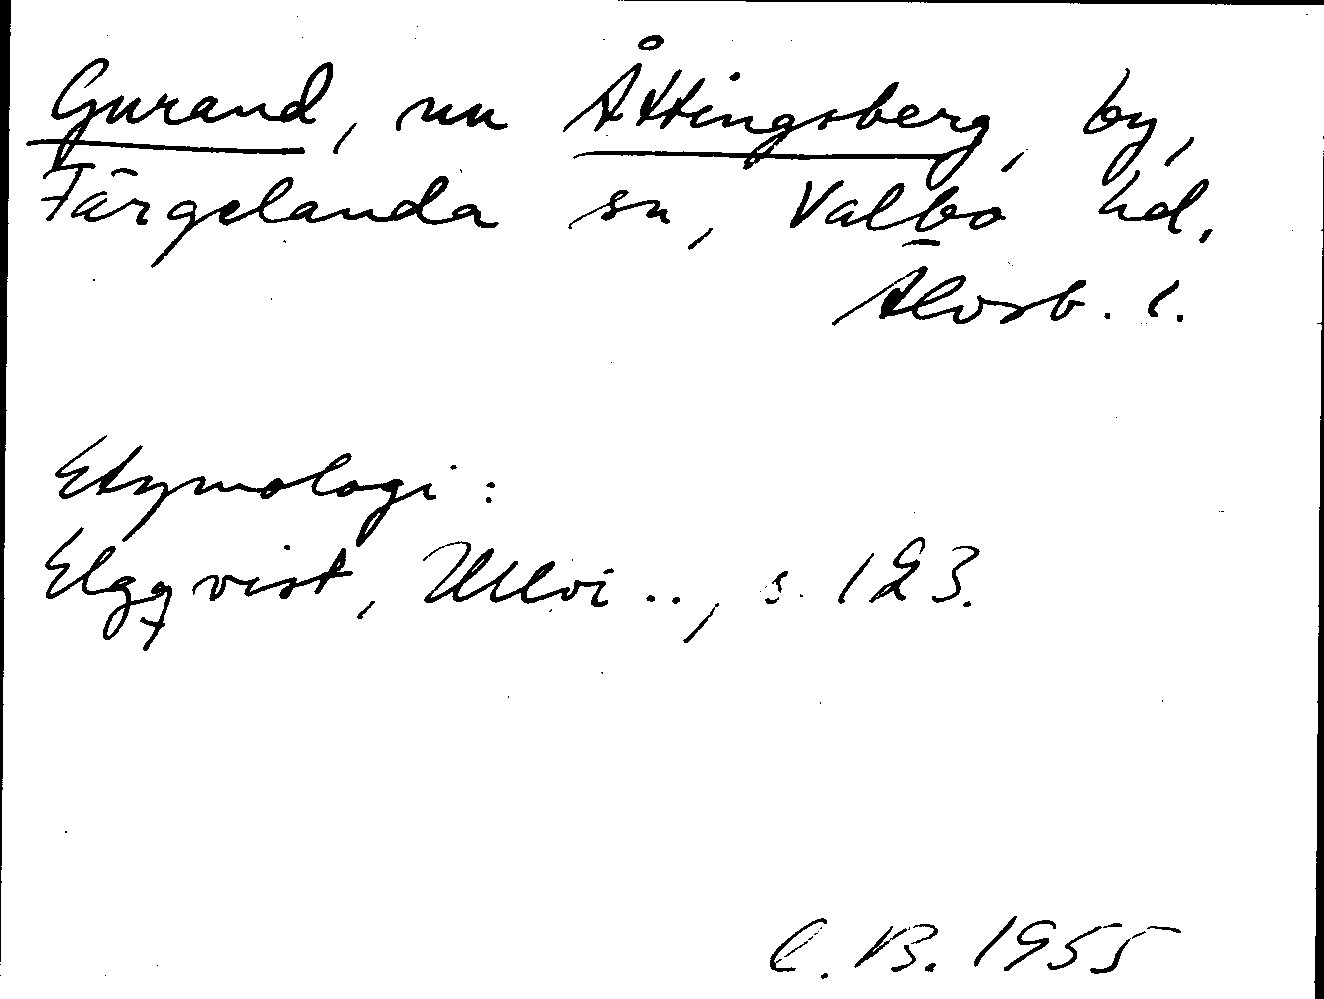 Gurand, nu Åttingsberg, by,
Färgelanda sn, Valbo hd,
Älvsb. l.
Etymologi:
Elgqvist, Ullvi .., s. 123.
C. B. 1955